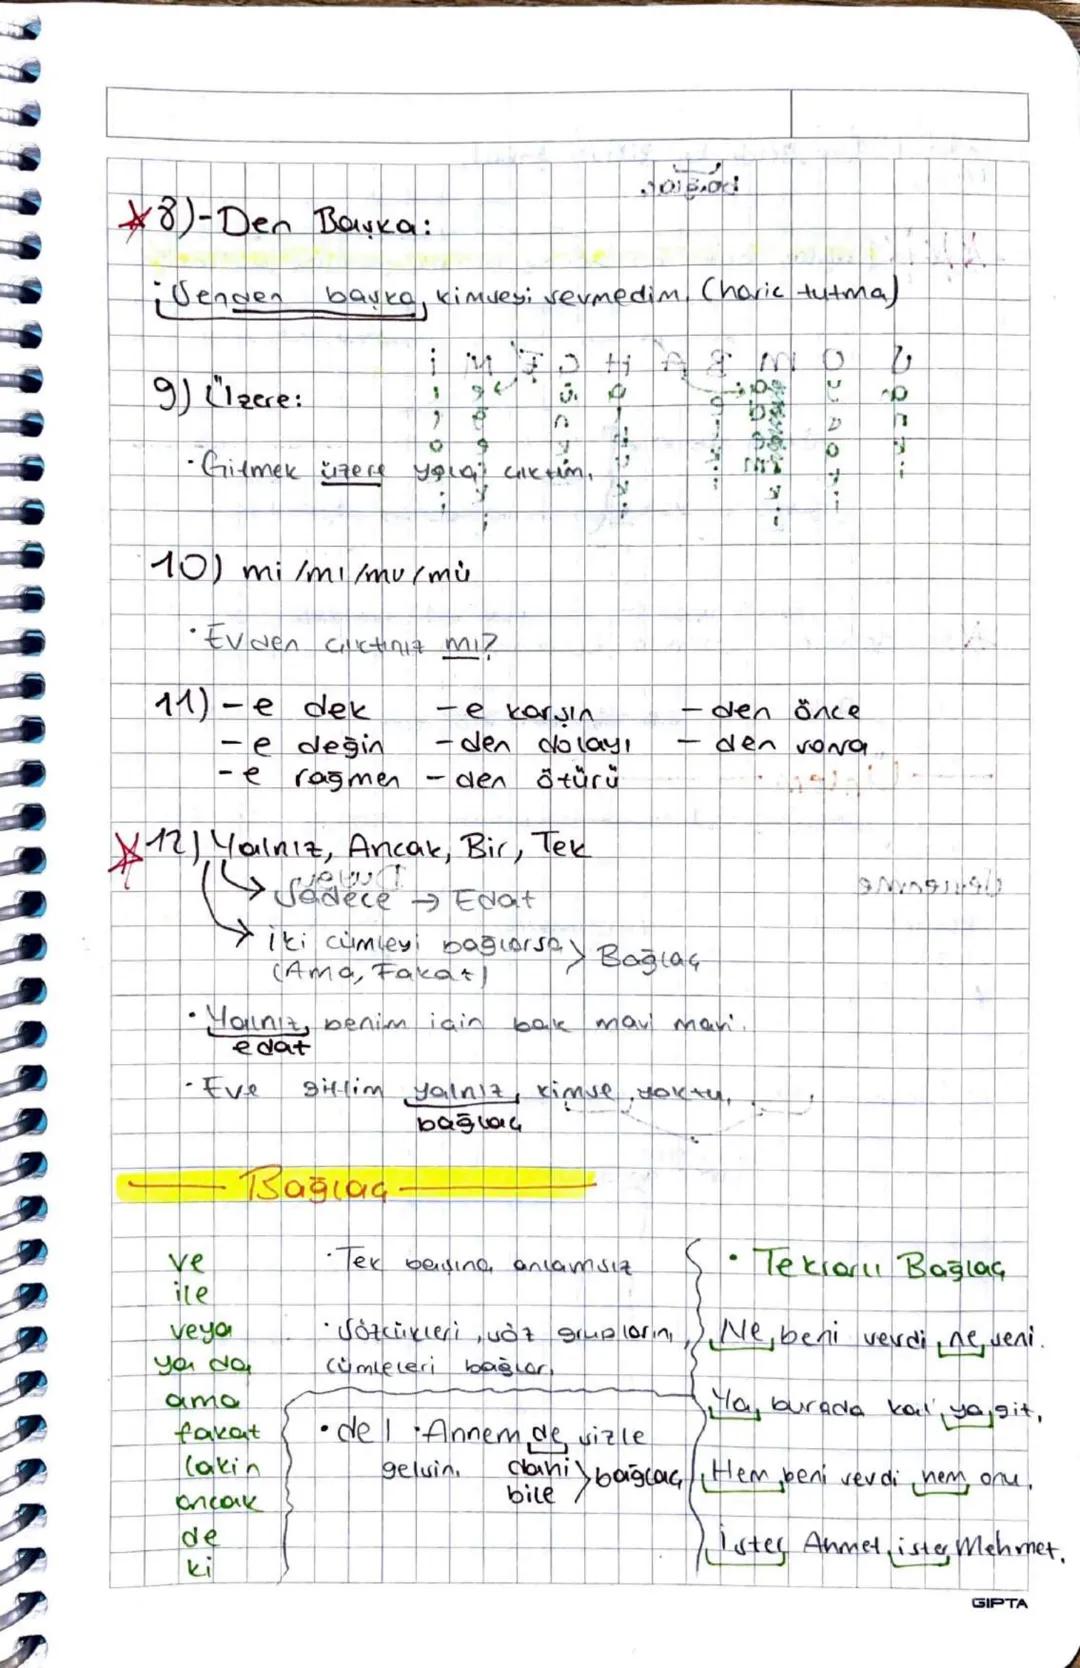 8)-Den Başka:
Senden başka kimseyi sevmedim. (hariç tutma)
9) Üzere:
·Gitmek üzere yola çıktım.
10) mi/mı/mu/mü
·Evden çıktınız mı?
11) -e dek -e karşın -den önce
-e değin -den dolayı -den sonra
-e rağmen -den ötürü
12) Yalnız, Ancak, Bir, Tek
→ Sadece → Edat
→ iki cümleyi bağlarsa > Bağlaç
(Ama, Fakat)
·Yalnız benim için bak mavi mavi.
edat
·Eve gittim yalnız kimse yoktu.
bağlaç
Bağlaç
ve
ile
veya
ya da
ama
fakat
lakin
ancak
de
ki
·Tek başına anlamsız
·Sözcükleri, söz gruplarını,
cümleleri bağlar.
·de | ·Annem de sizle
gelsin. dahi > bağlaç
bile
·Tekrarlı Bağlaç
Ne beni sevdi ne seni.
Ya burada kal ya git.
Hem beni sevdi hem onu.
İster Ahmet ister Mehmet.
GIPTA